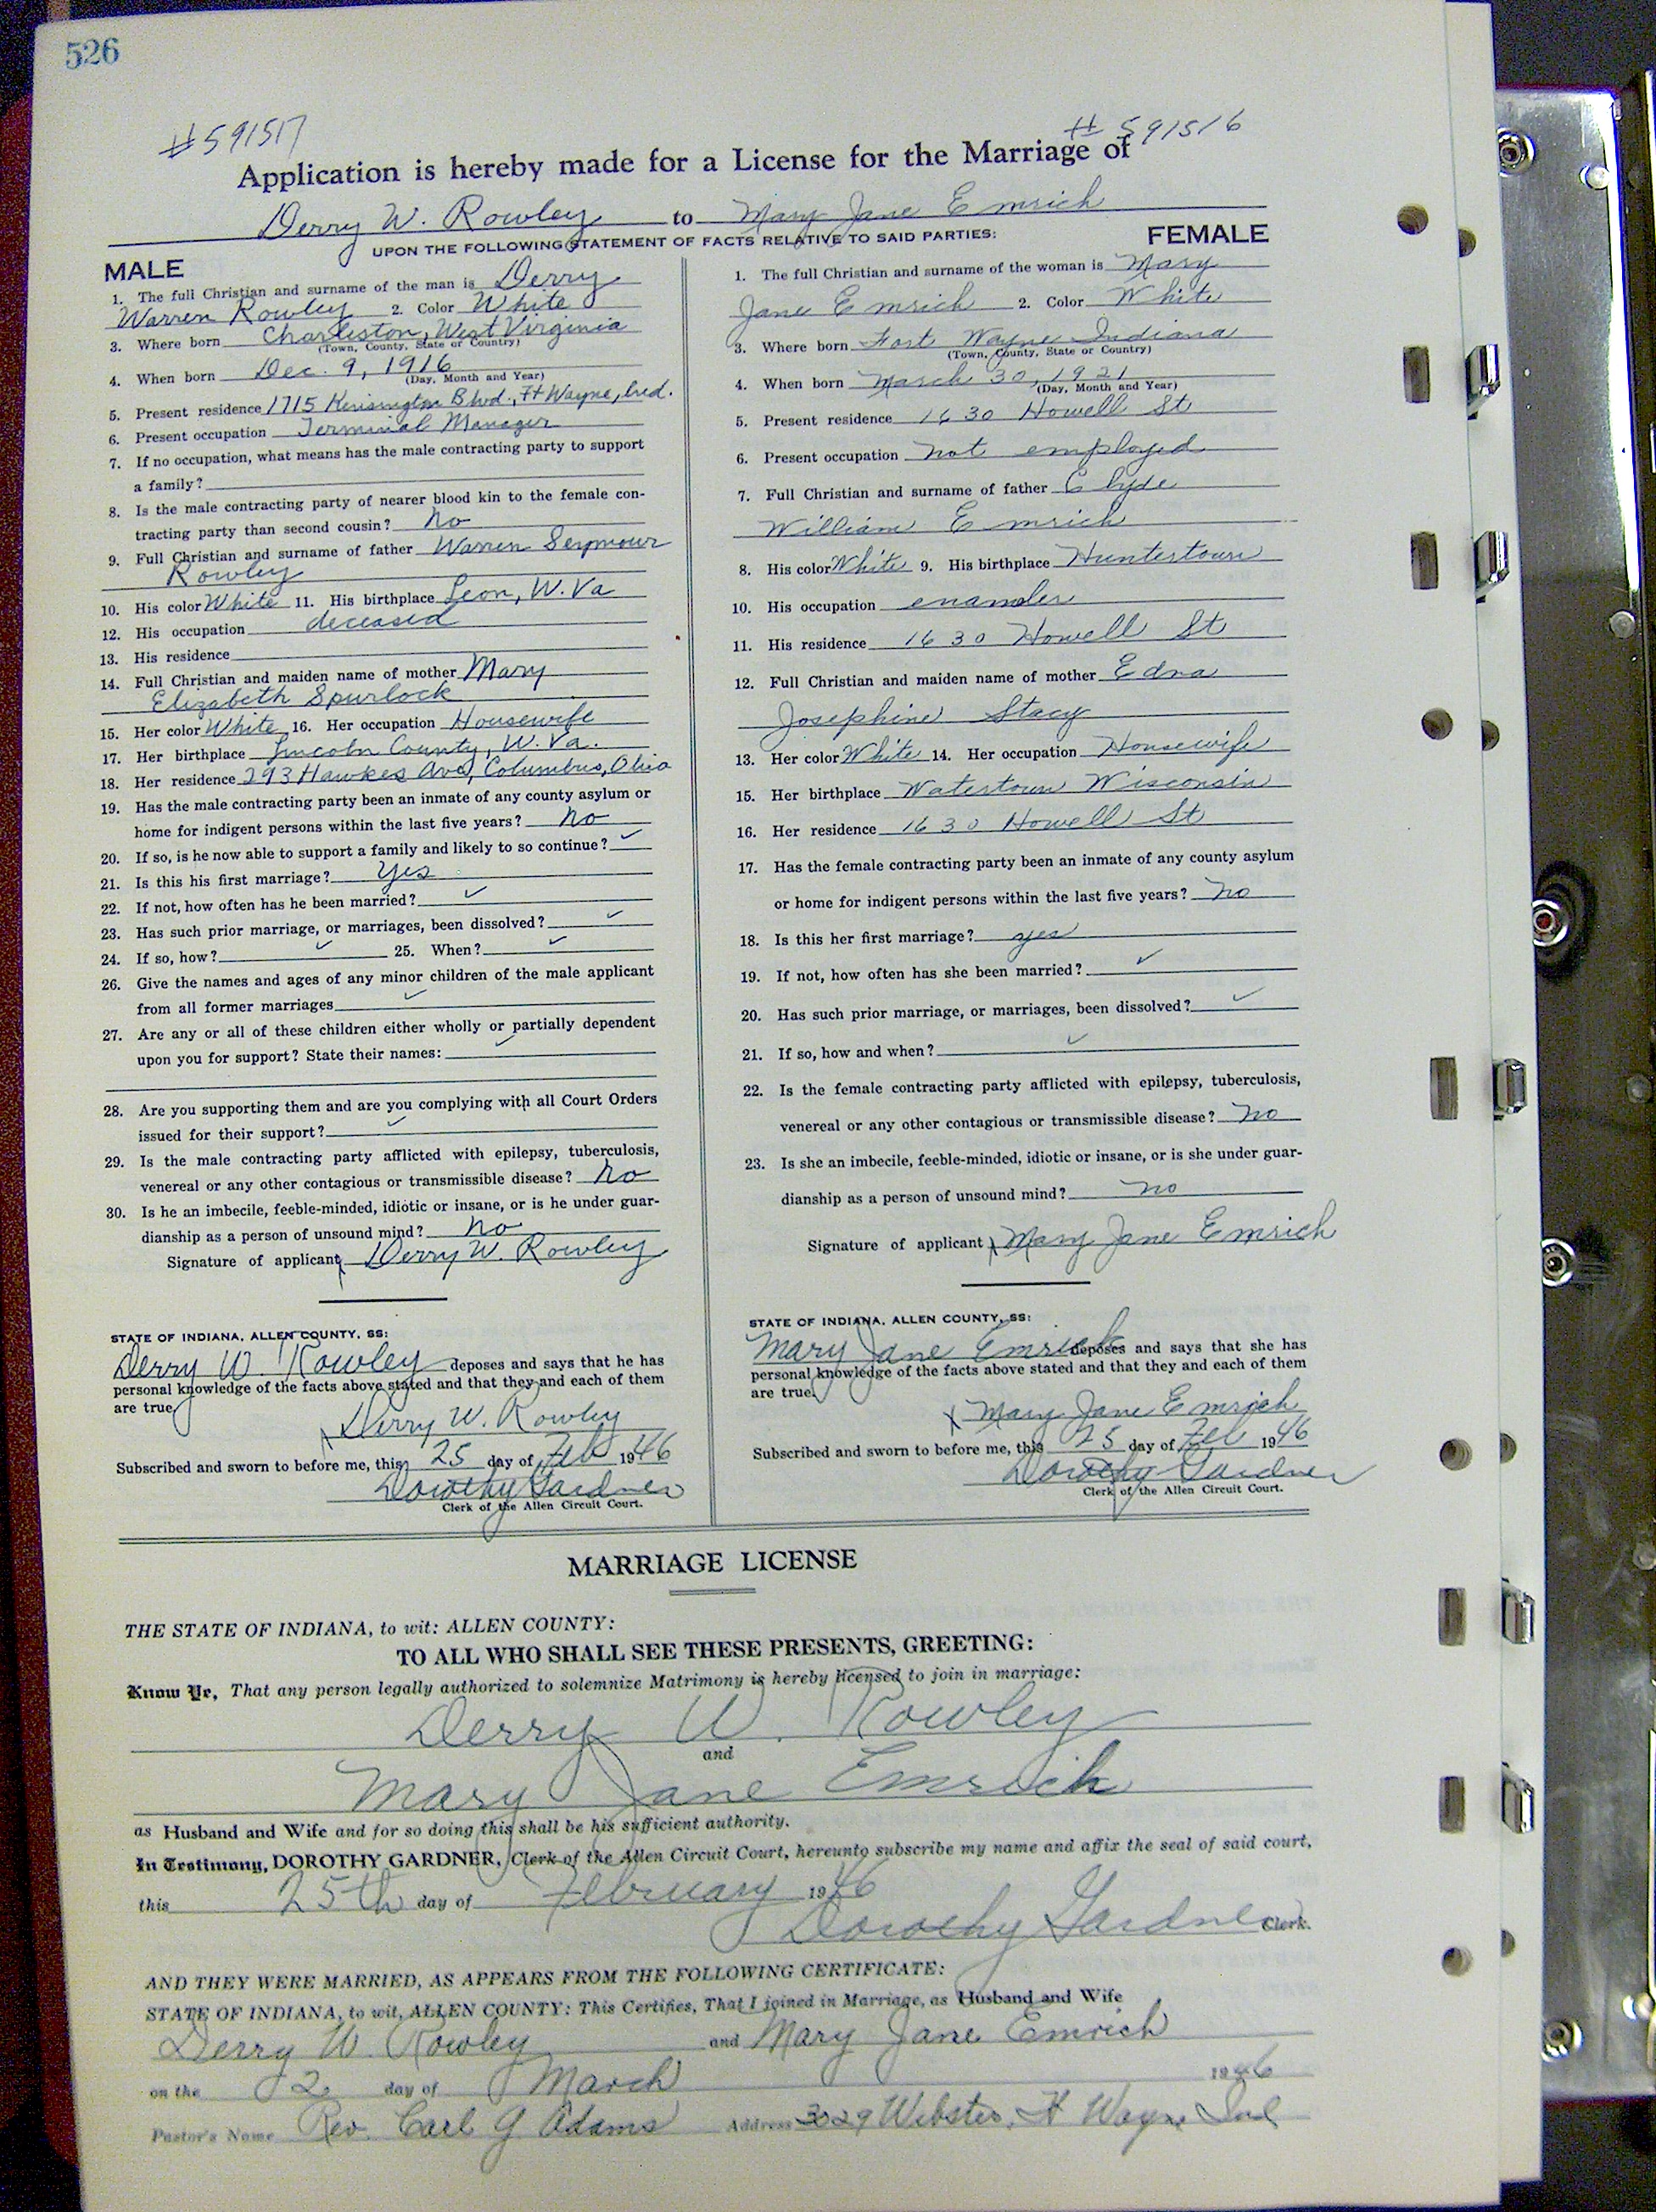 526
#591517
# 591516
Application is hereby made for a License for the Marriage of
Derry W. Rowley to Mary Jane Emrich
UPON THE FOLLOWING STATEMENT OF FACTS RELATIVE TO SAID PARTIES:
MALE
1. The full Christian and surname of the man is Derry
Warren Rowley 2. Color White
3. Where born Charleston, West Virginia
(Town, County, State or Country)
4. When born Dec. 9, 1916
(Day, Month and Year)
5. Present residence 1715 Kensington Blvd., Ft Wayne, Ind.
6. Present occupation Terminal Manager
7. If no occupation, what means has the male contracting party to support
a family?
8. Is the male contracting party of nearer blood kin to the female con-
tracting party than second cousin? No
9. Full Christian and surname of father Warren Seymour
Rowley
10. His color White 11. His birthplace Leon, W. Va
12. His occupation deceased
13. His residence
14. Full Christian and maiden name of mother Mary
Elizabeth Spurlock
15. Her color White 16. Her occupation Housewife
17. Her birthplace Lincoln County, W. Va.
18. Her residence 293 Hawkes Ave, Columbus, Ohio
19. Has the male contracting party been an inmate of any county asylum or
home for indigent persons within the last five years? No
20. If so, is he now able to support a family and likely to so continue? ✓
21. Is this his first marriage? Yes
22. If not, how often has he been married? ✓
23. Has such prior marriage, or marriages, been dissolved? ✓
24. If so, how? ✓ 25. When? ✓
26. Give the names and ages of any minor children of the male applicant
from all former marriages ✓
27. Are any or all of these children either wholly or partially dependent
upon you for support? State their names: ✓
28. Are you supporting them and are you complying with all Court Orders
issued for their support? ✓
29. Is the male contracting party afflicted with epilepsy, tuberculosis,
venereal or any other contagious or transmissible disease? No
30. Is he an imbecile, feeble-minded, idiotic or insane, or is he under guar-
dianship as a person of unsound mind? No
Signature of applicant x Derry W. Rowley
STATE OF INDIANA, ALLEN COUNTY, SS:
Derry W. Rowley deposes and says that he has
personal knowledge of the facts above stated and that they and each of them
are true.
x Derry W. Rowley
Subscribed and sworn to before me, this 25 day of Feb 1946
Dorothy Gardner
Clerk of the Allen Circuit Court.
FEMALE
1. The full Christian and surname of the woman is Mary
Jane Emrich 2. Color White
3. Where born Fort Wayne Indiana
(Town, County, State or Country)
4. When born March 30, 1921
(Day, Month and Year)
5. Present residence 1630 Howell St
6. Present occupation not employed
7. Full Christian and surname of father Clyde
William Emrich
8. His color White 9. His birthplace Huntertown
10. His occupation
11. His residence 1630 Howell St
12. Full Christian and maiden name of mother Edna
Josephine Stacy
13. Her color White 14. Her occupation Housewife
15. Her birthplace Watertown Wisconsin
16. Her residence 1630 Howell St
17. Has the female contracting party been an inmate of any county asylum
or home for indigent persons within the last five years? no
18. Is this her first marriage? yes
19. If not, how often has she been married? ✓
20. Has such prior marriage, or marriages, been dissolved? ✓
21. If so, how and when? ✓
22. Is the female contracting party afflicted with epilepsy, tuberculosis,
venereal or any other contagious or transmissible disease? no
23. Is she an imbecile, feeble-minded, idiotic or insane, or is she under guar-
dianship as a person of unsound mind? no
Signature of applicant x Mary Jane Emrich
STATE OF INDIANA, ALLEN COUNTY, SS:
Mary Jane Emrich deposes and says that she has
personal knowledge of the facts above stated and that they and each of them
are true.
x Mary Jane Emrich
Subscribed and sworn to before me, this 25 day of Feb 1946
Dorothy Gardner
Clerk of the Allen Circuit Court.
MARRIAGE LICENSE
THE STATE OF INDIANA, to wit: ALLEN COUNTY:
TO ALL WHO SHALL SEE THESE PRESENTS, GREETING:
Know Ye, That any person legally authorized to solemnize Matrimony is hereby licensed to join in marriage:
Derry W. Rowley
and
Mary Jane Emrich
as Husband and Wife and for so doing this shall be his sufficient authority.
In Testimony, DOROTHY GARDNER, Clerk of the Allen Circuit Court, hereunto subscribe my name and affix the seal of said court,
this 25th day of February 1946
Dorothy Gardner Clerk.
AND THEY WERE MARRIED, AS APPEARS FROM THE FOLLOWING CERTIFICATE:
STATE OF INDIANA, to wit, ALLEN COUNTY: This Certifies, That I joined in Marriage, as Husband and Wife
Derry W. Rowley and Mary Jane Emrich
on the 2 day of March 1946
Pastor's Name Rev. Carl G Adams Address 3029 Webster, Ft Wayne Ind